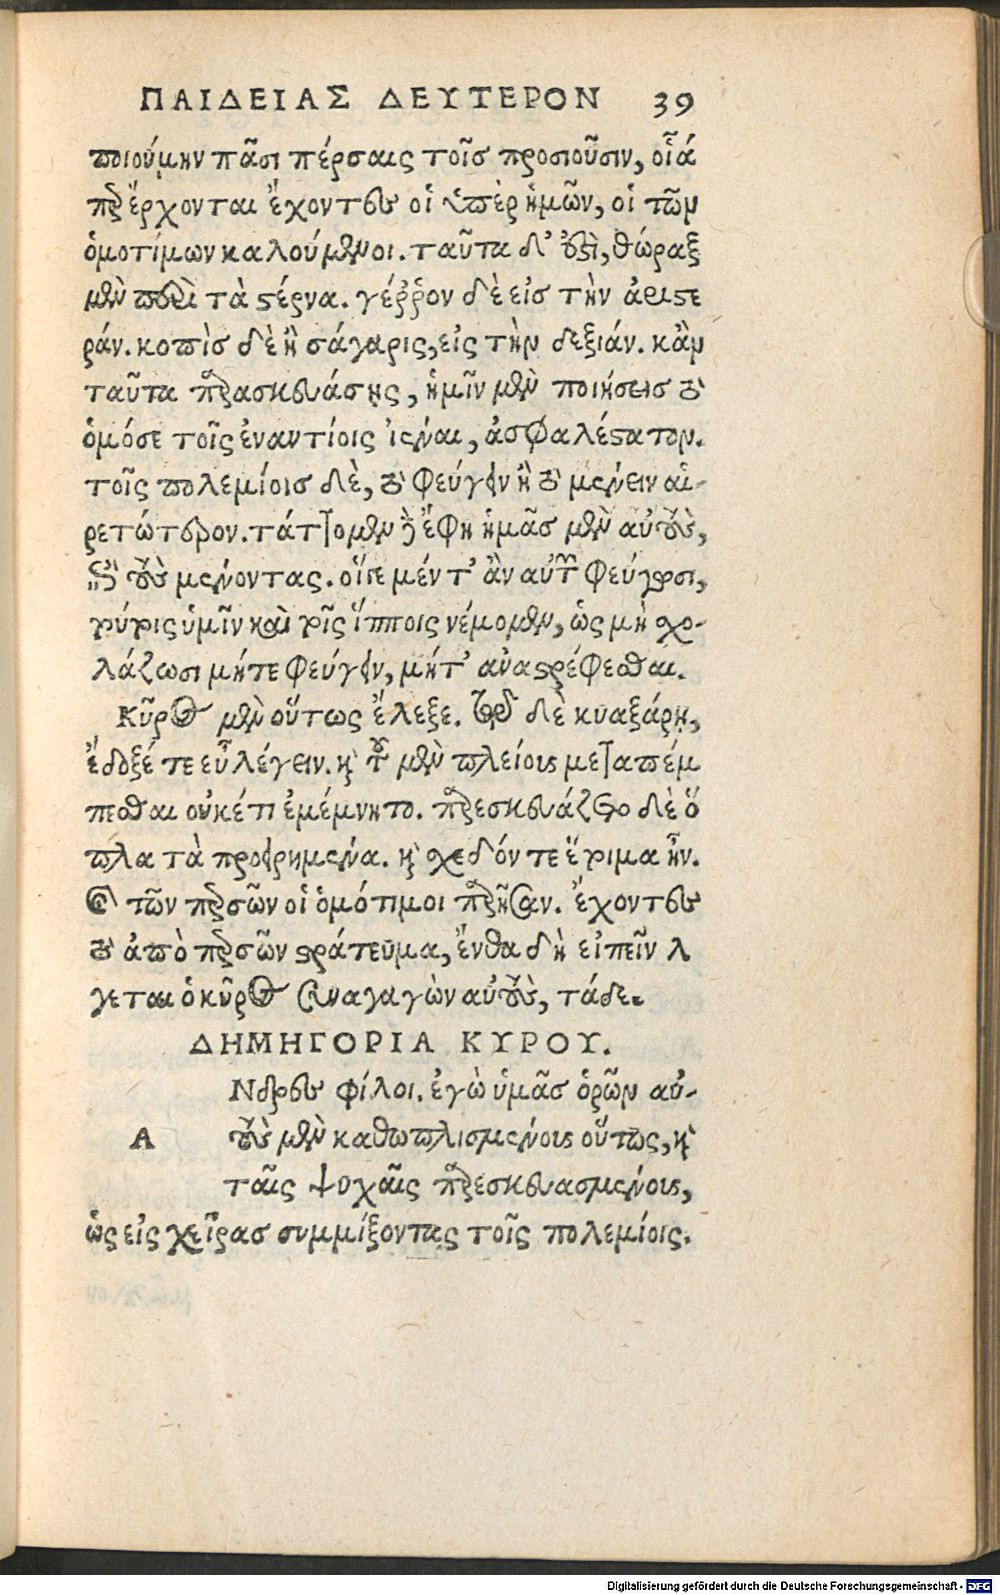 ΠΑΙΔΕΙΑΣ ΔΕΥΤΕΡΟΝ 39
ποιούμην πᾶσι πέρσαις τοῖς προσιοῦσιν, οἷά
περ ἔρχονται ἔχοντες οἱ ὑπὲρ ἡμῶν, οἱ τῶν
ὁμοτίμων καλούμενοι. ταῦτα δ' ἐστὶ, θώραξ
μὲν περὶ τὰ στέρνα. γέῤῥον δὲ εἰς τὴν ἀριστε
ράν. κοπὶς δὲ ἢ σάγαρις, εἰς τὴν δεξιάν. κἂν
ταῦτα παρασκευάσῃς, ἡμῖν μὲν ποιήσεις τὸ
ὁμόσε τοῖς ἐναντίοις ἰέναι, ἀσφαλέστατον.
τοῖς πολεμίοις δὲ, τὸ φεύγειν ἢ τὸ μένειν αἱ-
ρετώτερον. τάττομεν δὲ ἔφη ἡμᾶς μὲν αὐτοὺς,
ἐπὶ τοὺς μένοντας. οἵγε μέντ' ἂν αὐτῶν φεύγωσι,
τούτοις ὑμῖν καὶ τοῖς ἵπποις νέμομεν, ὡς μὴ σχο-
λάζωσι μήτε φεύγειν, μήτ' ἀναστρέφεσθαι.
Κῦρος μὲν οὕτως ἔλεξε. τῷ δὲ κυαξάρῃ,
ἔδοξέ τε εὖ λέγειν. καὶ τοῦ μὲν πλείους μεταπέμ
πεσθαι οὐκέτι ἐμέμνητο. παρεσκευάζετο δὲ ὅ
πλα τὰ προειρημένα. καὶ σχεδόν τε ἕτοιμα ἦν.
καὶ τῶν περσῶν οἱ ὁμότιμοι παρῆσαν. ἔχοντες
τὸ ἀπὸ περσῶν στράτευμα, ἔνθα δὴ εἰπεῖν λ
γεται ὁ κῦρος συναγαγὼν αὐτοὺς, τάδε.
ΔΗΜΗΓΟΡΙΑ ΚΥΡΟΥ.
Νδρες φίλοι. ἐγὼ ὑμᾶς ὁρῶν αὐ-
Α τοὺς μὲν καθωπλισμένους οὕτως, καὶ
ταῖς ψυχαῖς παρεσκευασμένους,
ὡς εἰς χεῖρας συμμίξοντας τοῖς πολεμίοις.
Digitalisierung gefördert durch die Deutsche Forschungsgemeinschaft - DFG